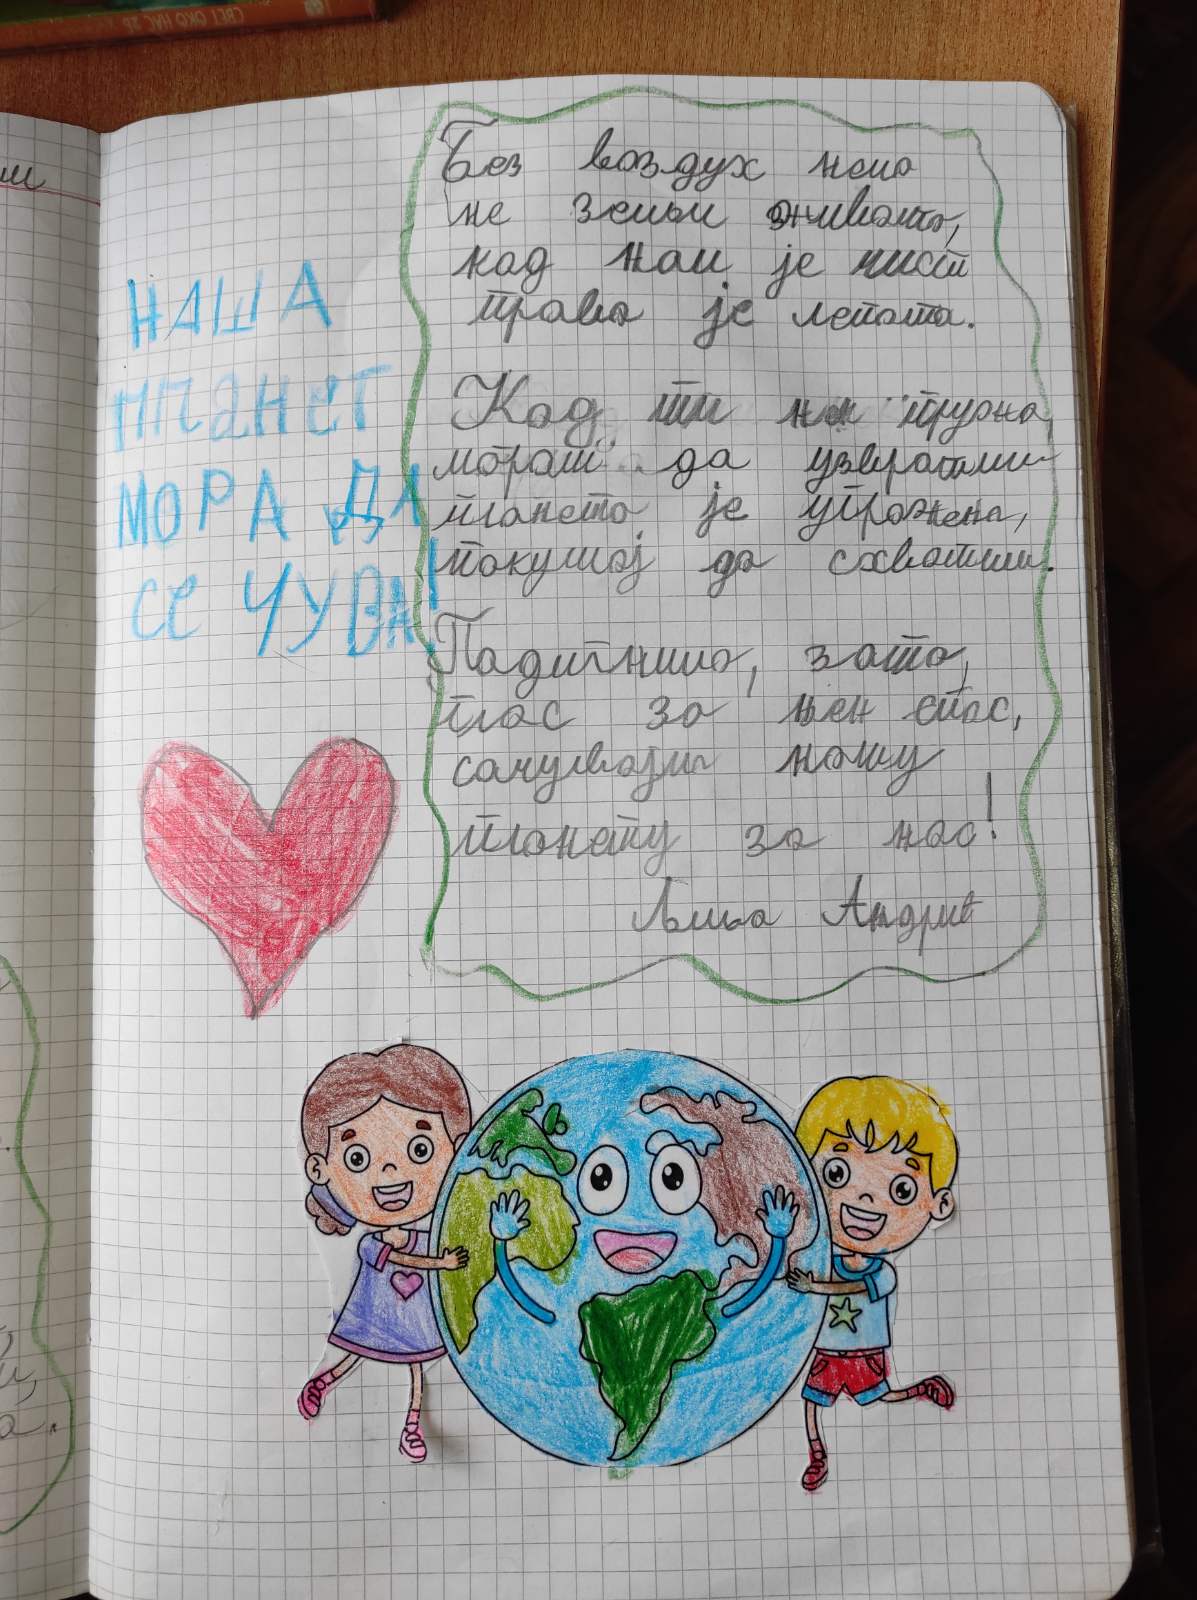 СВЕТ ОКО НАС 2Б
НАША
ППАНЕТ
МОРА ДА
СЕ ЧУВА!
Без ваздух нема
на земљи живота,
кад нам је чист
права је лепота.
Кад ти нешто пружа
мораш да узвратиш
планета је угрожена,
покушај да схватиш.
Подигнимо, зато,
глас за њен спас,
сачувајмо нашу
планету за нас!
Лиња Андрић